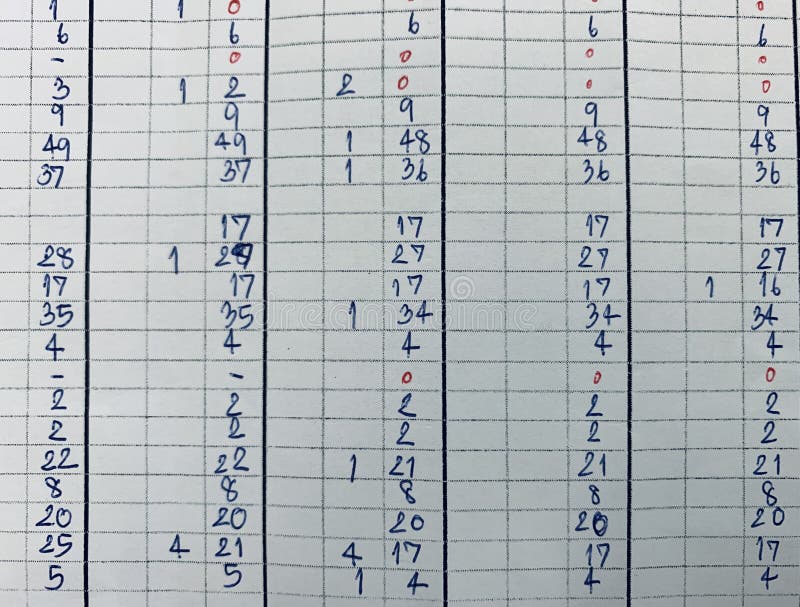 1 1 0 0 0
6 6 6 6 6
- 0 0 0 0
3 1 2 2 0 0 0
9 9 9 9 9
49 49 1 48 48 48
37 37 1 36 36 36
17 17 17 17
28 1 27 27 27 27
17 17 17 17 1 16
35 35 1 34 34 34
4 4 4 4 4
- - 0 0 0
2 2 2 2 2
2 2 2 2 2
22 22 1 21 21 21
8 8 8 8 8
20 20 20 20 20
25 4 21 4 17 17 17
5 5 1 4 4 4